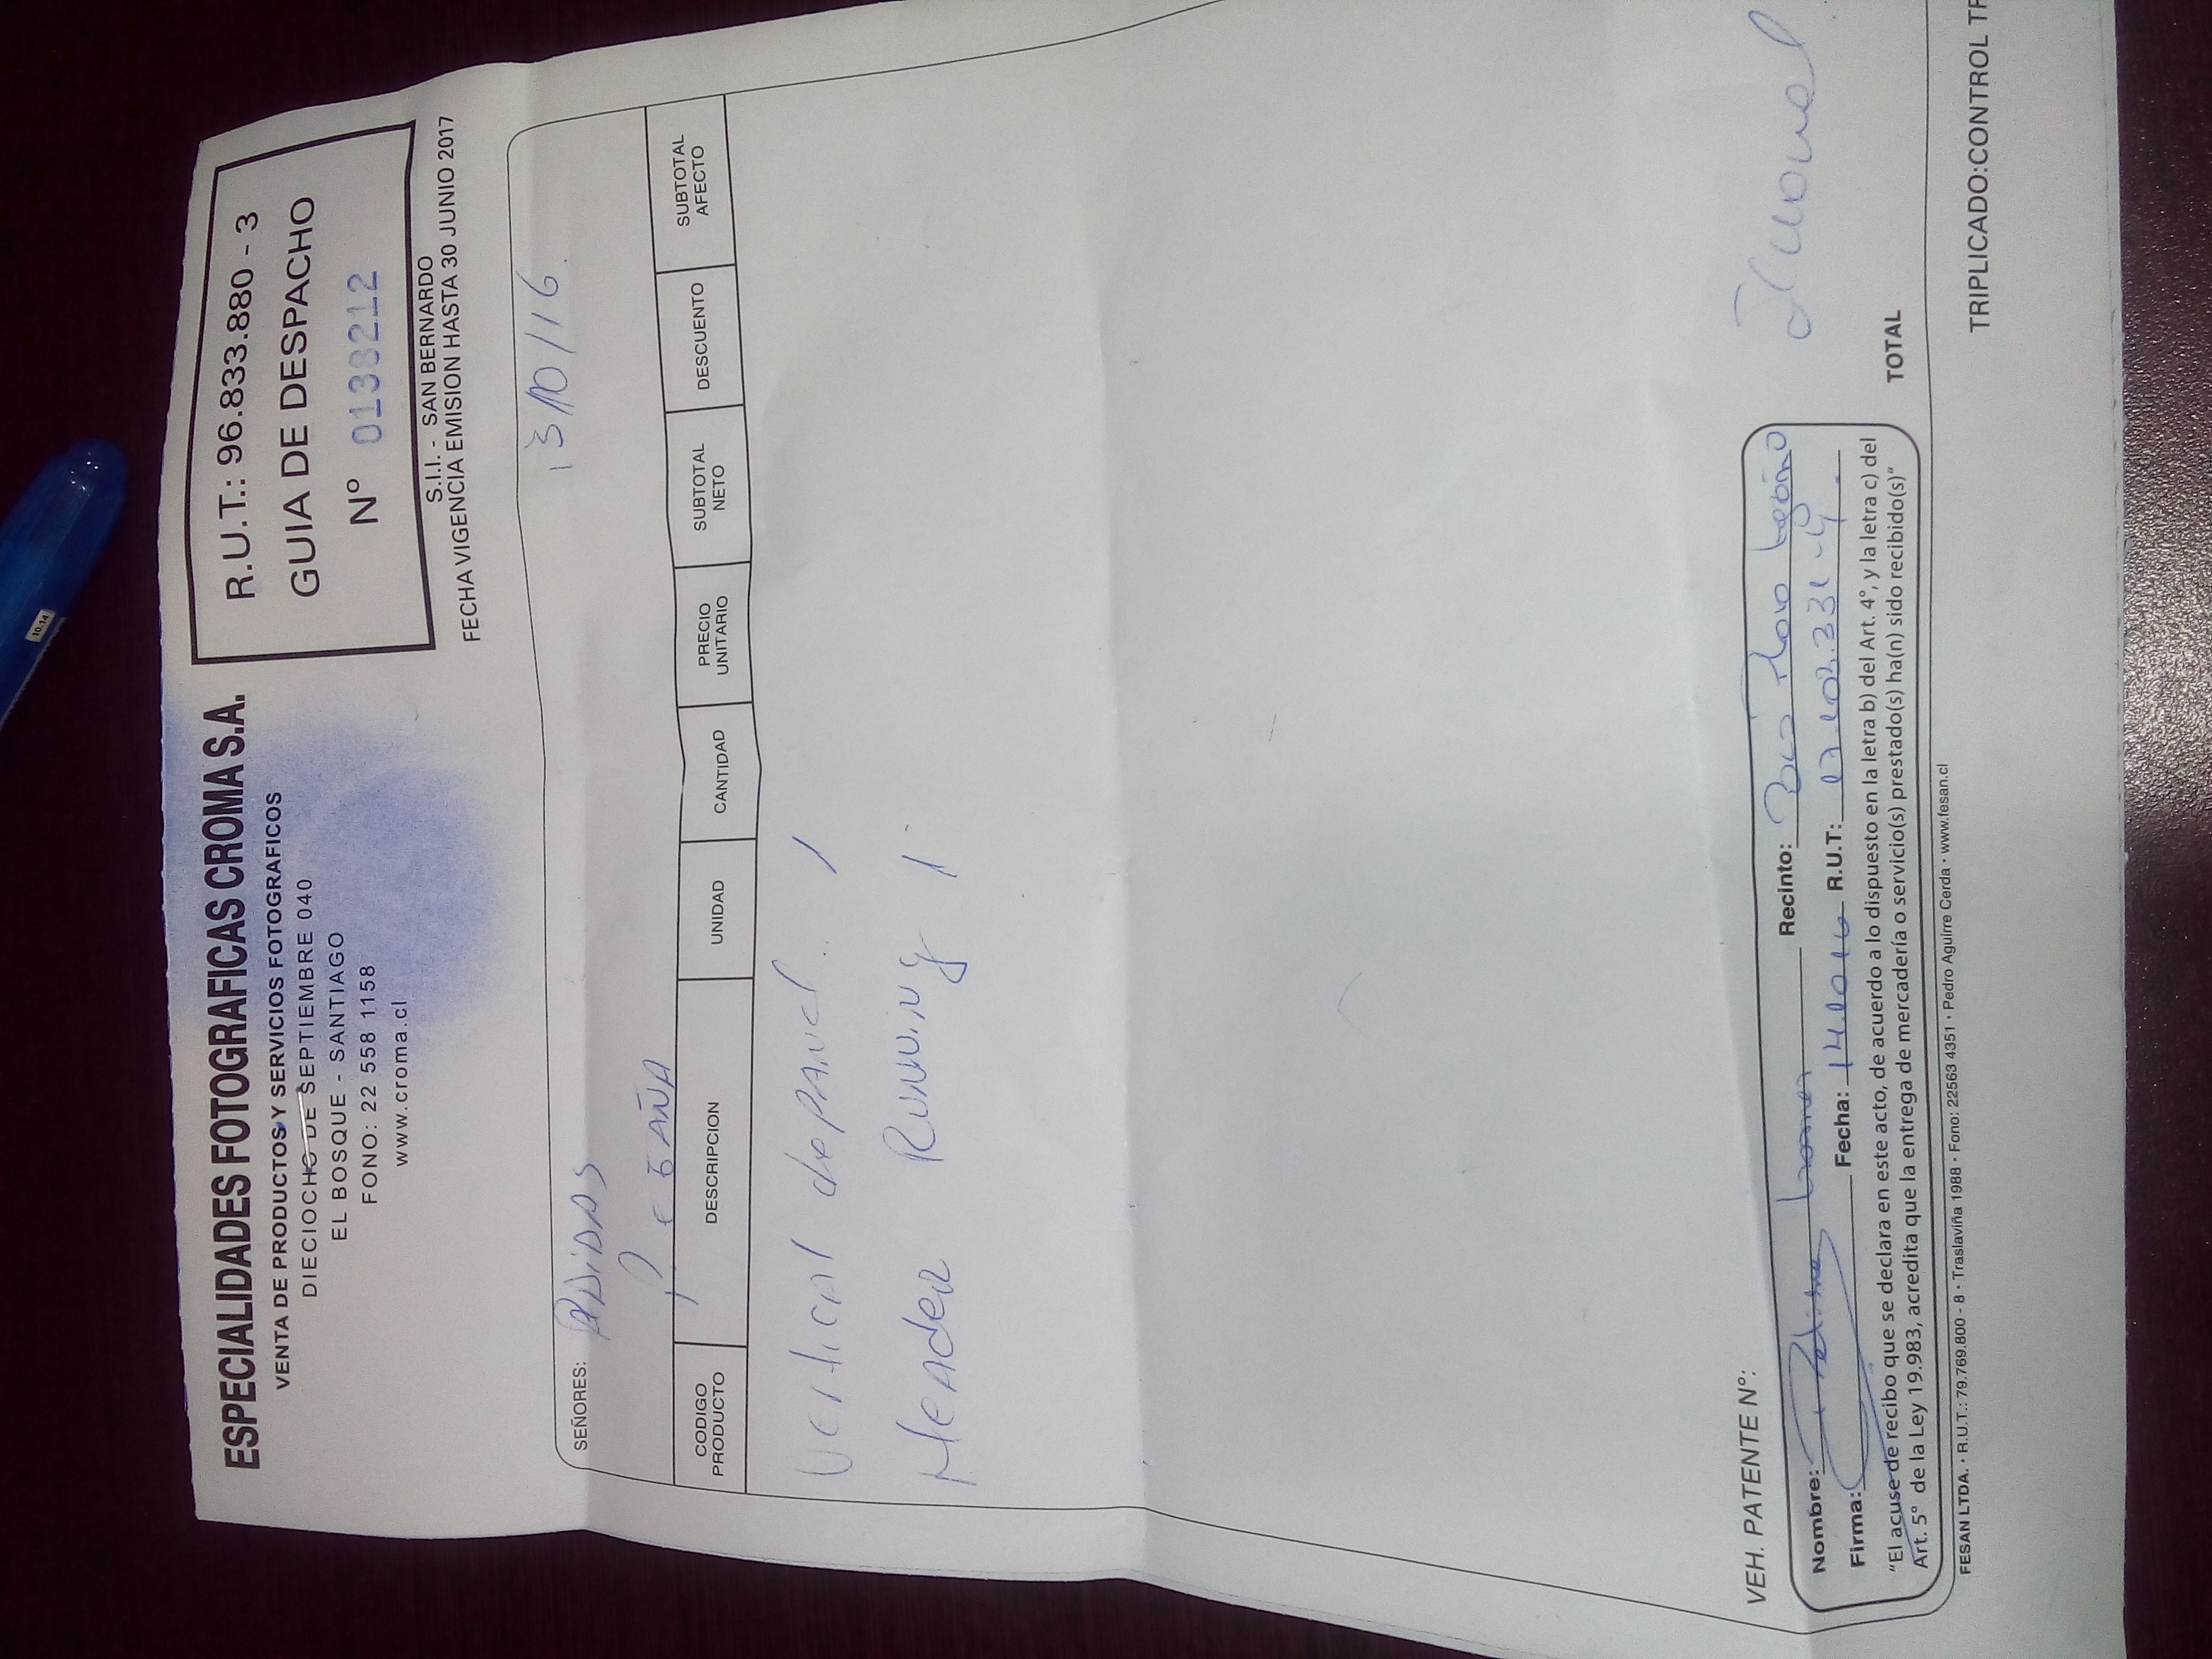 10.14
ESPECIALIDADES FOTOGRAFICAS CROMA S.A.
VENTA DE PRODUCTOS Y SERVICIOS FOTOGRAFICOS
DIECIOCHO DE SEPTIEMBRE 040
EL BOSQUE - SANTIAGO
FONO: 22 558 1158
www.croma.cl
R.U.T.: 96.833.880 - 3
GUIA DE DESPACHO
Nº 0138212
S.I.I. - SAN BERNARDO
FECHA VIGENCIA EMISION HASTA 30 JUNIO 2017
13/10/16
SEÑORES: ADiDAS
P. EGAÑA
CODIGO PRODUCTO DESCRIPCION UNIDAD CANTIDAD PRECIO UNITARIO SUBTOTAL NETO DESCUENTO SUBTOTAL AFECTO
Vertical depanel 1
Header Running 1
VEH. PATENTE Nº:
Nombre: Recinto: Plaza Egaña
Firma: Fecha: 14.10.16 R.U.T:
"El acuse de recibo que se declara en este acto, de acuerdo a lo dispuesto en la letra b) del Art. 4º, y la letra c) del
Art. 5º de la Ley 19.983, acredita que la entrega de mercadería o servicio(s) prestado(s) ha(n) sido recibido(s)"
TOTAL
FESAN LTDA. • R.U.T.: 79.769.800 - 8 • Traslaviña 1988 • Fono: 22563 4351 • Pedro Aguirre Cerda • www.fesan.cl
TRIPLICADO:CONTROL TR